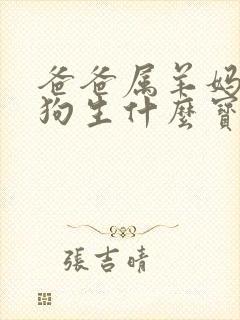 爸爸属羊妈
狗生什麼寶
張吉晴